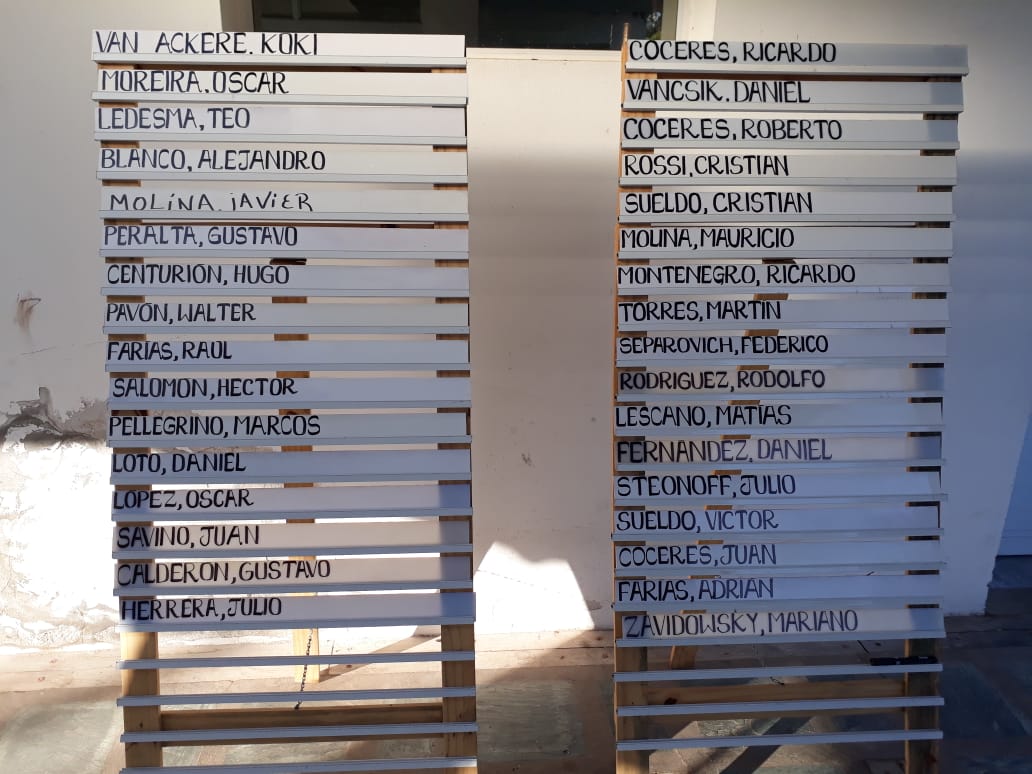 VAN ACKERE. KOKI
MOREIRA. OSCAR
LEDESMA, TEO
BLANCO, ALEJANDRO
MOLINA. JAVIER
PERALTA, GUSTAVO
CENTURION, HUGO
PAVÓN, WALTER
FARIAS, RAUL
SALOMON, HECTOR
PELLEGRINO, MARCOS
LOTO, DANIEL
LOPEZ, OSCAR
SAVINO, JUAN
CALDERON, GUSTAVO
HERRERA, JULIO
COCERES, RICARDO
VANCSIK. DANIEL
COCERES, ROBERTO
ROSSI, CRISTIAN
SUELDO, CRISTIAN
MOLINA, MAURICIO
MONTENEGRO, RICARDO
TORRES, MARTIN
SEPAROVICH, FEDERICO
RODRIGUEZ, RODOLFO
LESCANO, MATÍAS
FERNANDEZ, DANIEL
STEONOFF, JULIO
SUELDO, VICTOR
COCERES, JUAN
FARIAS, ADRIAN
ZAVIDOWSKY, MARIANO